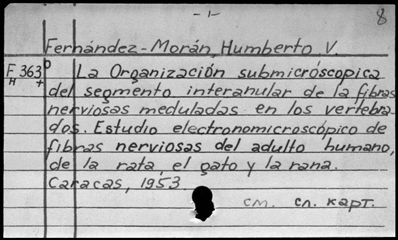 -1-
8
Fernández-Morán, Humberto V.
F 363
H +
o
La Organización submicróscopica
del segmento interanular de la fibras
nerviosas meduladas en los vertebra-
dos. Estudio electronomicroscópico de
fibras nerviosas del adulto humano,
de la rata, el gato y la rana.
Caracas, 1953
см. сл. карт.